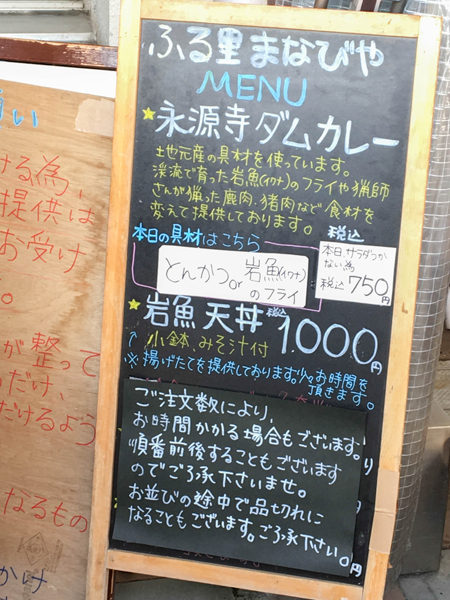 ふる里まなびや
MENU
★永源寺ダムカレー
土地元産の具材を使っています。
渓流で育った岩魚(イワナ)のフライや猟師
さんが猟った鹿肉、猪肉など食材を
変えて提供しております。
税込
本日の具材はこちら
とんかつor岩魚(イワナ)
のフライ
本日、サラダつか
ない為
税込750円
★岩魚天丼 税込1,000円
↑小鉢、みそ汁付
※揚げたてを提供しております。少々お時間を
頂きます。
ご注文数により、
お時間かかる場合もございます。
順番前後することもございます
のでご了承下さいませ。
お並びの途中で品切れに
なることもございます。ご了承下さい。
り
円
円
い
ける為、
提供は
お受け
。
が整って
だけ
だけるよう
なるもの
かけ